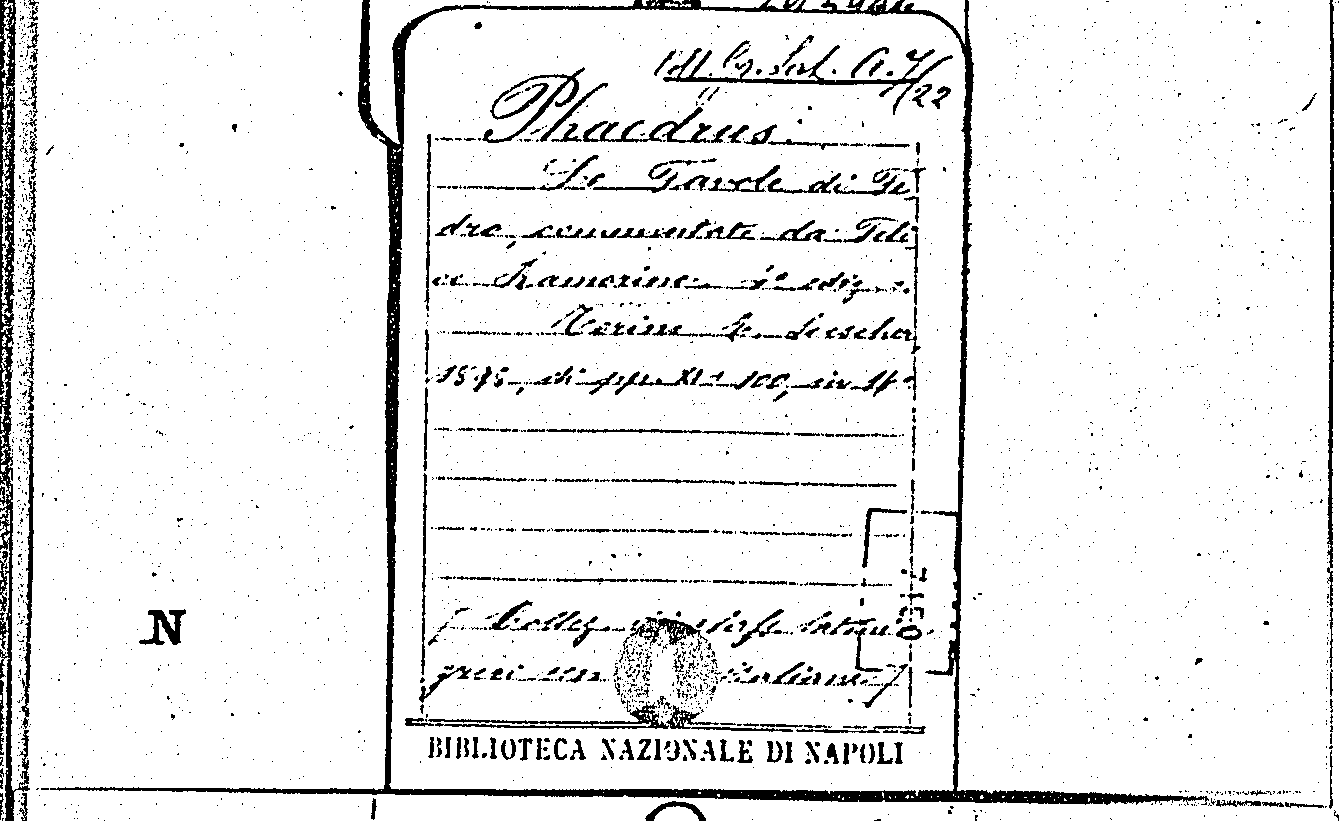 Coll. Gr. Lat. A. 7/22
Phaedrus.
Le Favole di Fe
dro, commentate da Feli
ce Ramorino. 1ª ediz.e.
Torino E. Loescher,
di pp. XI- 100, in 4º
[Collez. latini
greci con italiane]
BIBLIOTECA NAZIONALE DI NAPOLI
N